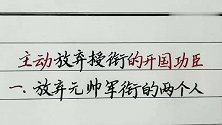 主动放弃授衔的开国功臣
一.放弃元帅军衔的两个人